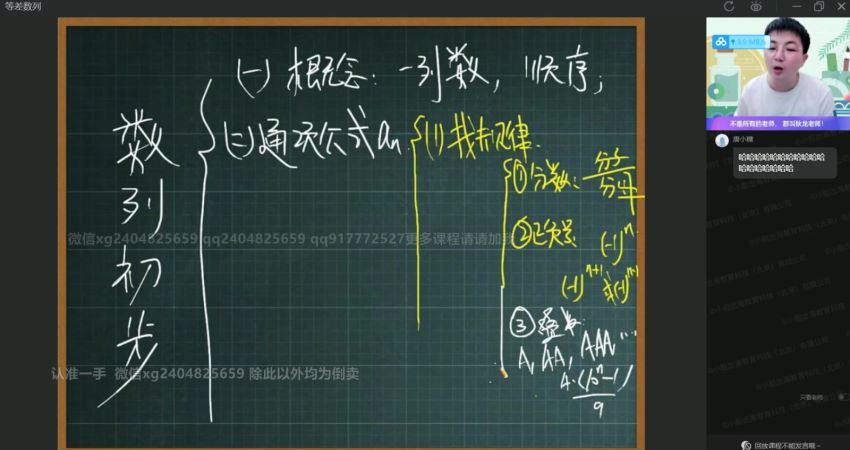 等差数列
3.9 MB/s
(一) 概念: 一列数, 顺序;
数列初步
(二) 通项公式an
(1) 找规律.
① 分数: 分子/分母
② 正负号: (-1)^n
(-1)^{n+1} 或 (-1)^{n-1}
③ 叠数:
A, AA, AAA, ...
A·(10^n-1)/9
微信xg2404825659 qq2404825659 qq917772527更多课程请请加我
认准一手 微信xg2404825659 除此以外均为倒卖
不是所有的老师,都叫秋龙老师!
唐小糖
哈哈哈哈哈哈哈哈哈哈哈
哈哈哈哈哈哈哈
只看老师
回放课程不能发言哦~